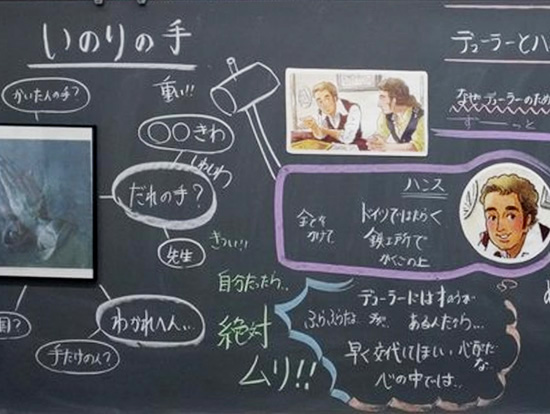 いのりの手
かいた人の手？
重い!!
〇〇きわ
しわしわ
だれの手？
先生
きつい!!
国？
わかれへん…
手だけの人？
自分だったら…
絶対
ムリ!!
デューラーとハ
なぜ、デューラーのため
ずーーっと
ハンス
ドイツではたらく
鉄工所で
金を
かけて
デューラーには才のうが
ある人だから…
早く交代してほしい
心の中では…